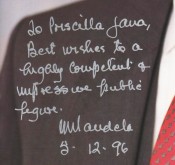 To Priscilla Jana,
Best wishes to a
highly competent &
impressive public
figure.
NMandela
3. 12. 96